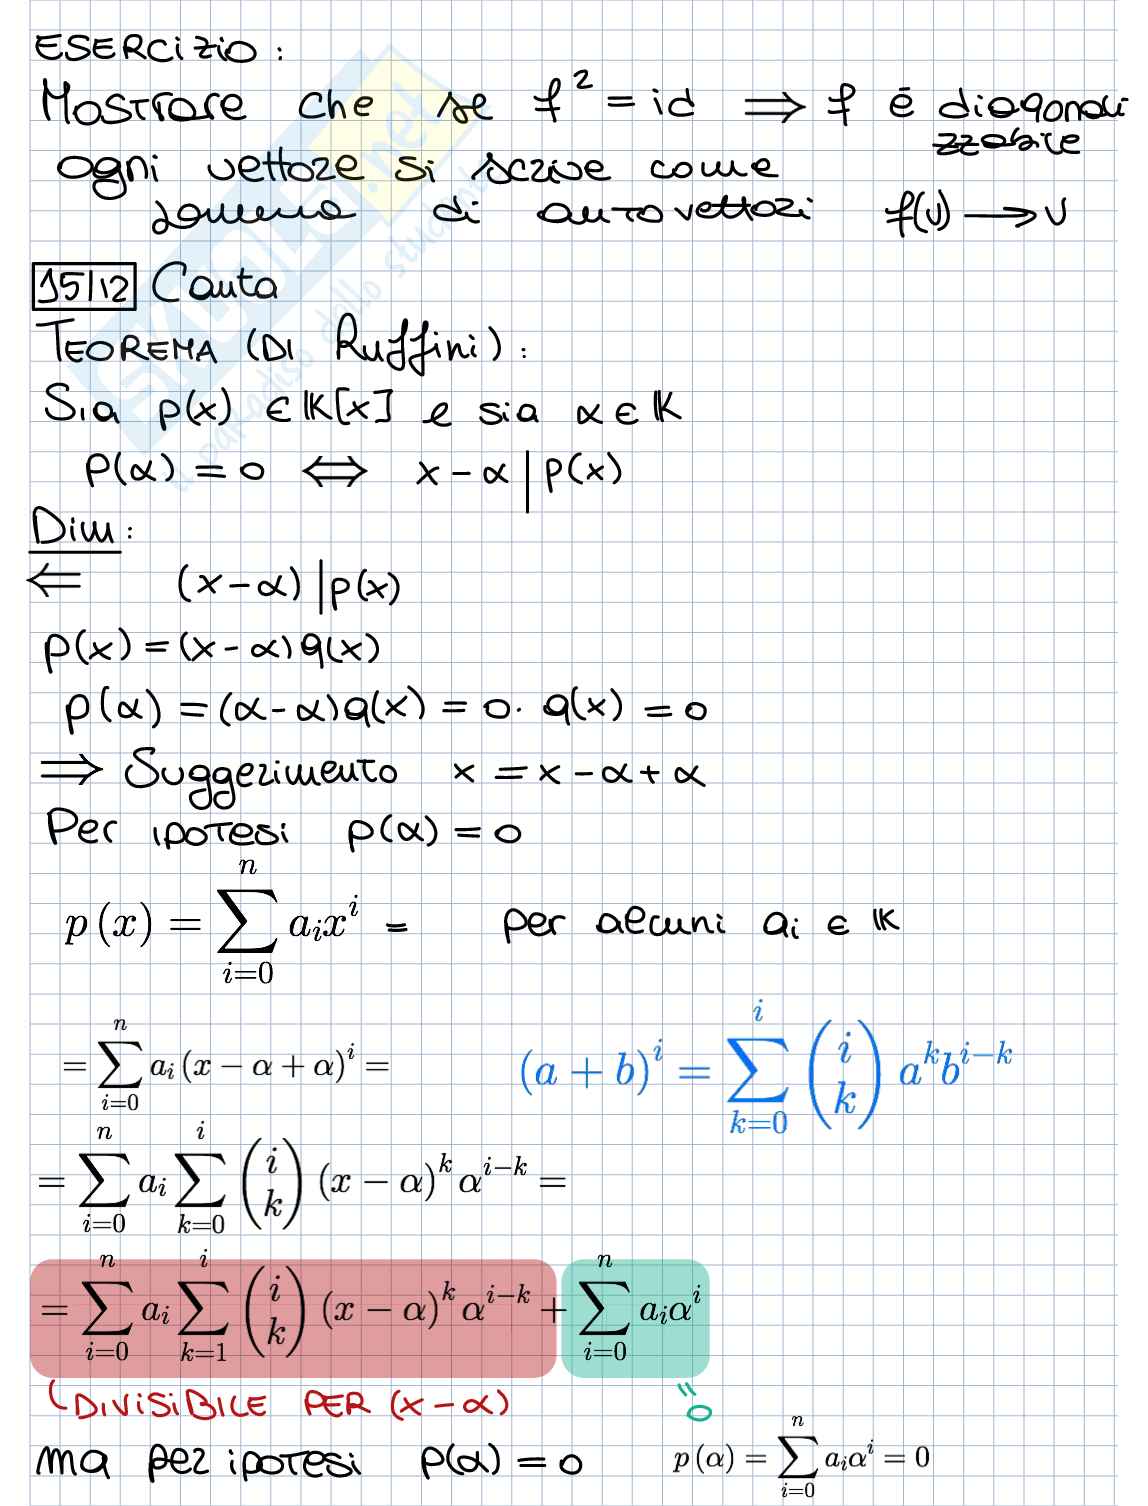 ESERCizio:
MOSTrare che se f² = id ⟹ f é diagonali
zzabile
ogni vettore si scrive come
somma di autovettori f(v) ⟶ v
15/12 Cauta
TEOREMA (DI Ruffini):
Sia p(x) ∈ K[x] e sia α ∈ K
P(α) = 0 ⟺ x - α | p(x)
Dim:
⟸ (x - α) | p(x)
p(x) = (x - α) q(x)
p(α) = (α - α) q(x) = 0 · q(x) = 0
⟹ Suggerimento x = x - α + α
Per ipotesi p(α) = 0
p(x) = ∑_{i=0}^{n} a_i x^i = per alcuni a_i ∈ K
= ∑_{i=0}^{n} a_i (x - α + α)^i = (a + b)^i = ∑_{k=0}^{i} (i k) a^k b^{i-k}
= ∑_{i=0}^{n} a_i ∑_{k=0}^{i} (i k) (x - α)^k α^{i-k} =
= ∑_{i=0}^{n} a_i ∑_{k=1}^{i} (i k) (x - α)^k α^{i-k} + ∑_{i=0}^{n} a_i α^i
DIVISIBILE PER (x - α) = 0
ma per ipotesi p(α) = 0 p(α) = ∑_{i=0}^{n} a_i α^i = 0
SKUOLA.net
il paradiso dello studente